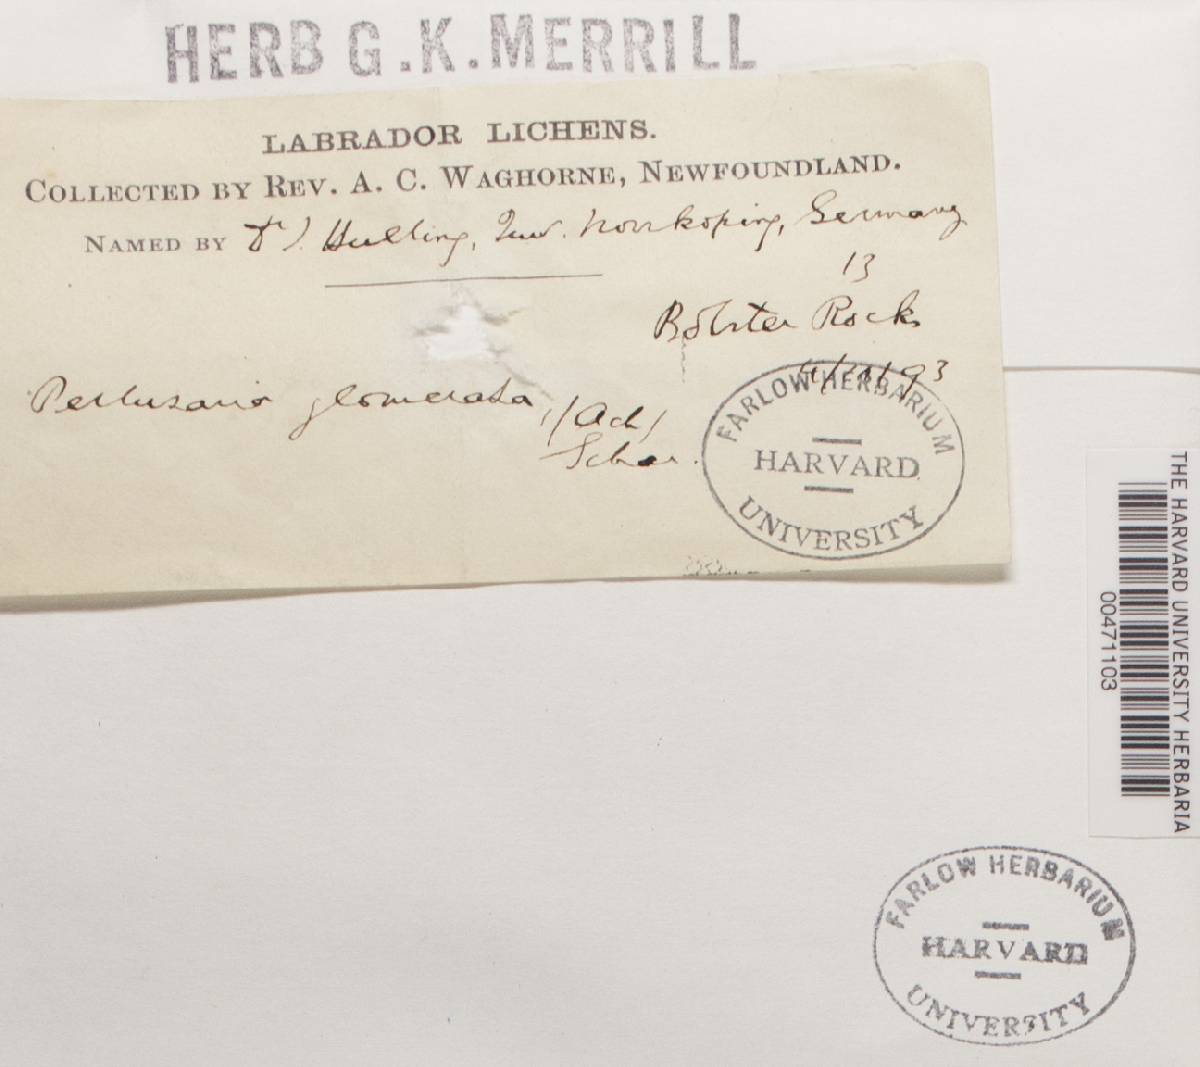 HERB G.K.MERRILL
LABRADOR LICHENS.
COLLECTED BY REV. A. C. WAGHORNE, NEWFOUNDLAND.
NAMED BY Dr J. Hulting, Norrkoping, Germany
13
Bolster Rocks
93
Pertusaria glomerata, (Ach)
Schaer.
FARLOW HERBARIUM
HARVARD
UNIVERSITY
THE HARVARD UNIVERSITY HERBARIA
00471103
FARLOW HERBARIUM
HARVARD
UNIVERSITY